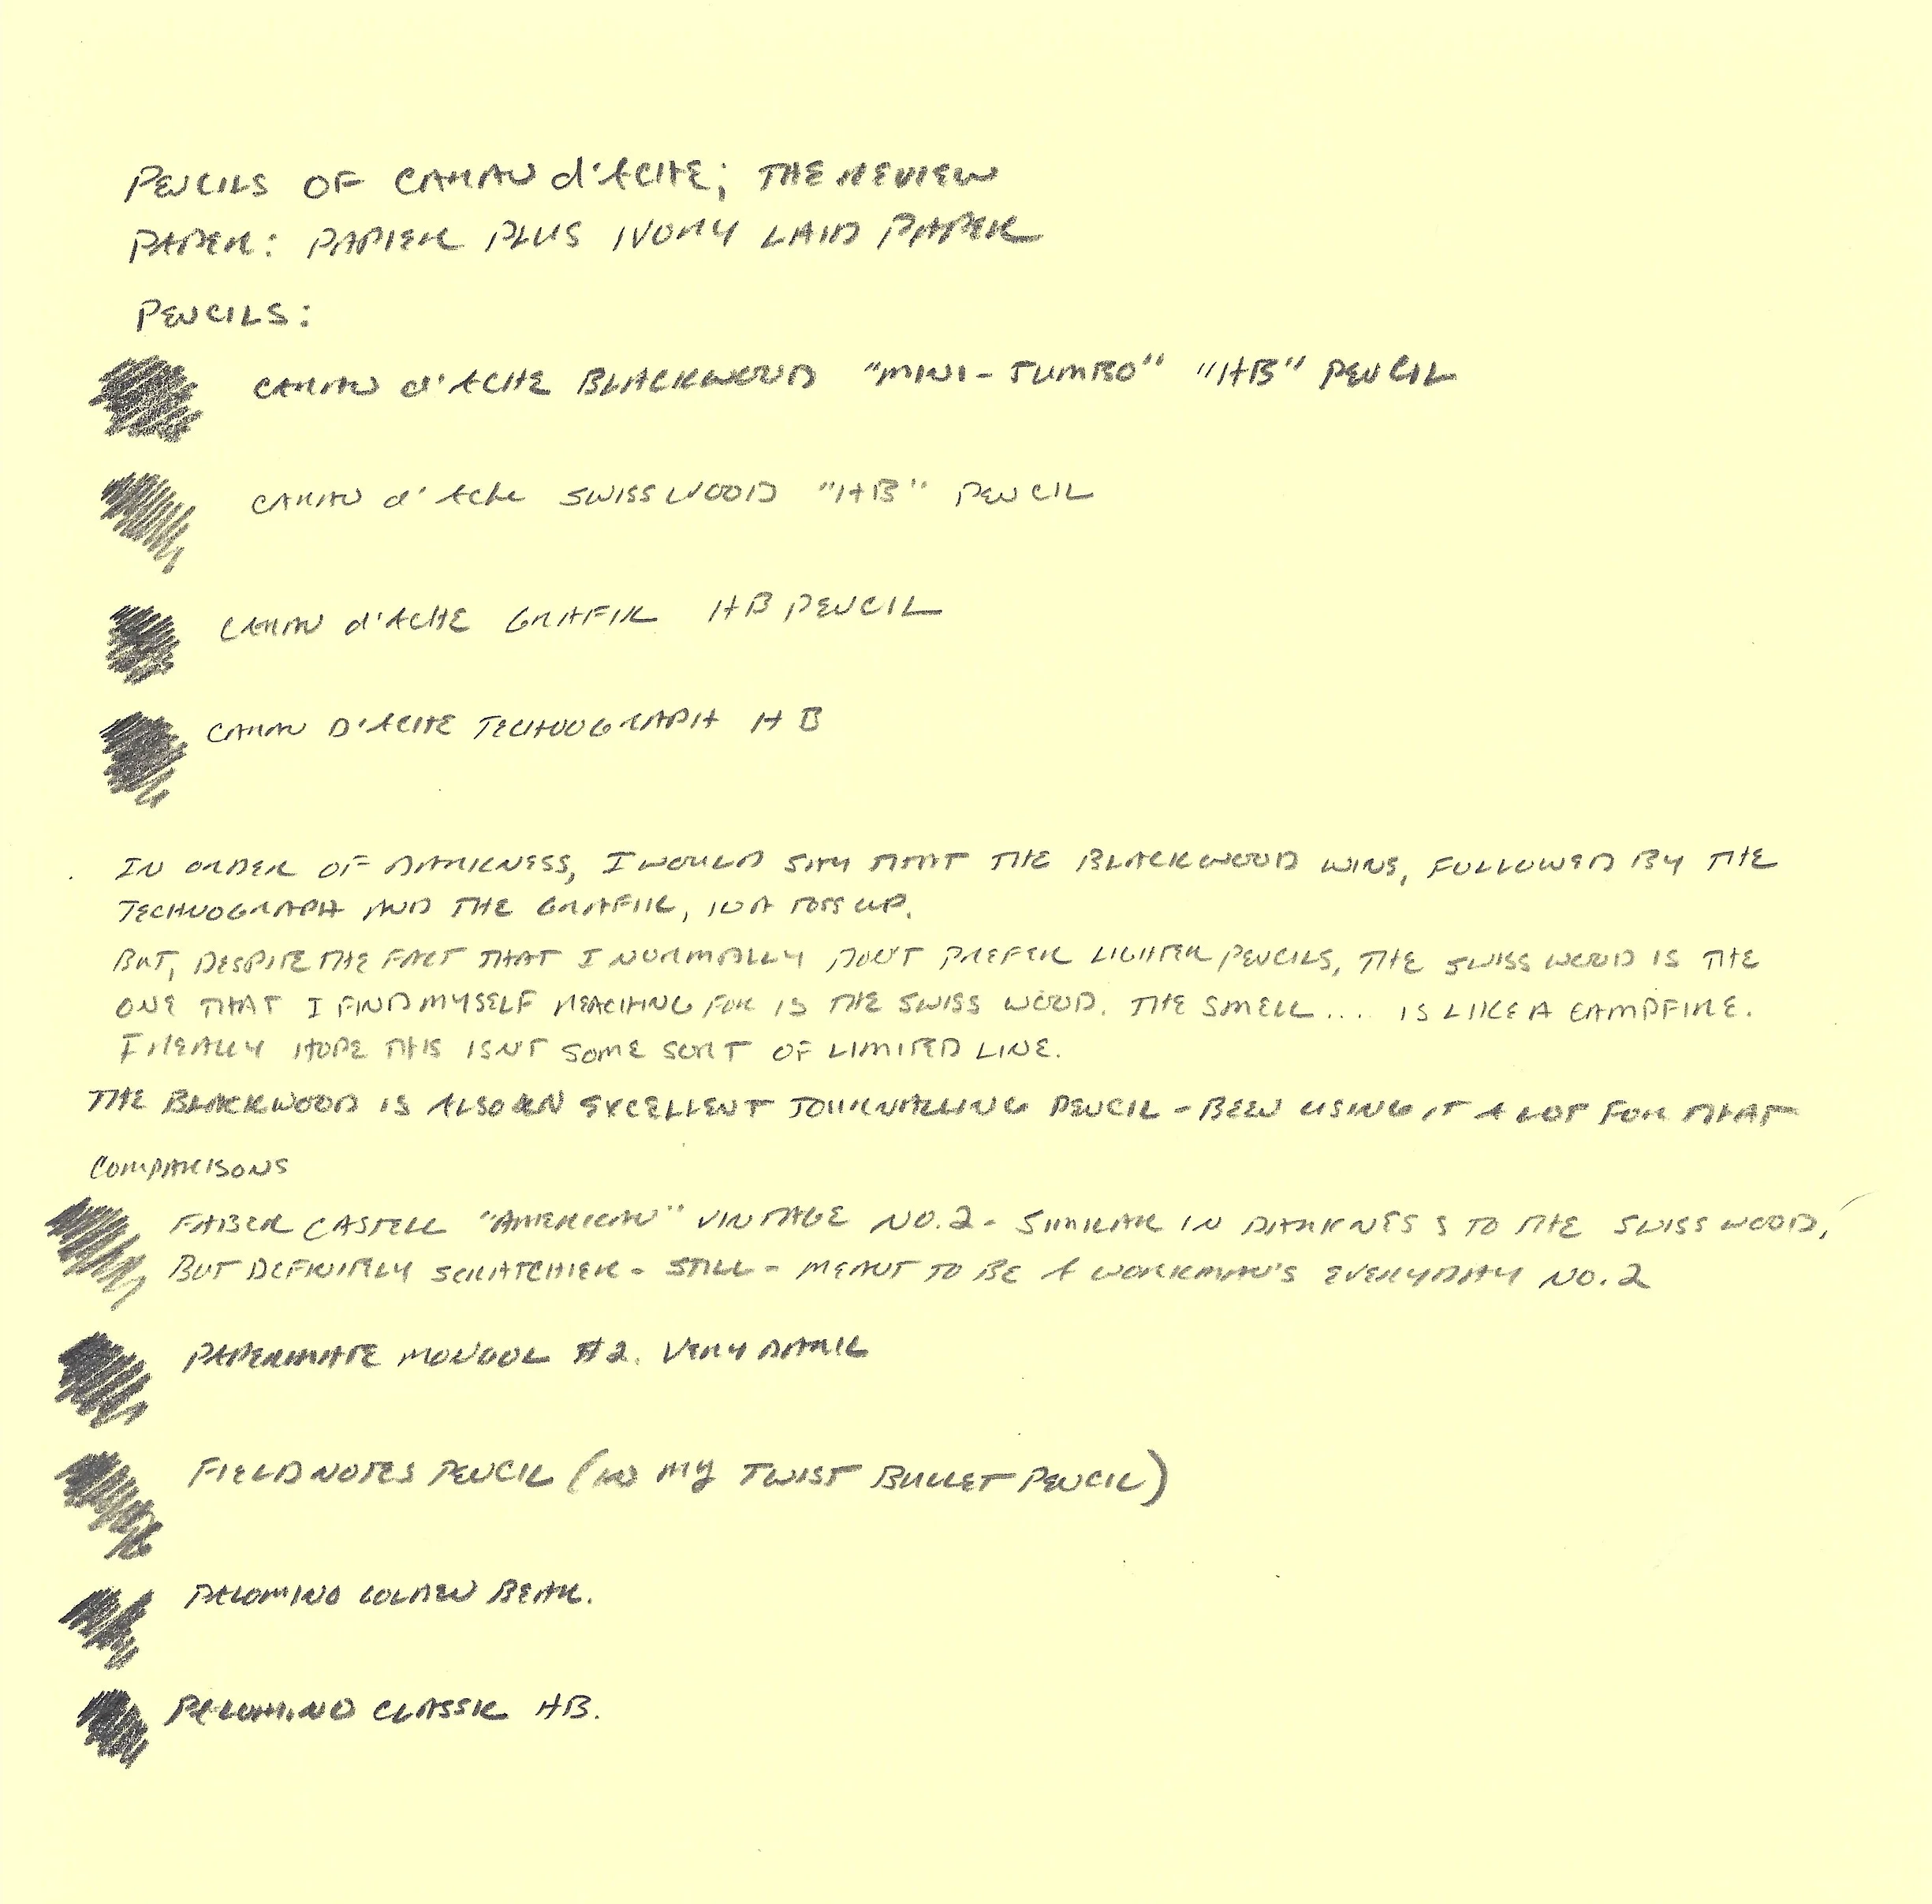 PENCILS OF CARAN d'ACHE; THE REVIEW
PAPER: PAPIER PLUS IVORY LAID PAPER
PENCILS:
CARAN d'ACHE BLACKWOOD "MINI-JUMBO" "HB" PENCIL
CARAN d'AChe SWISS WOOD "HB" PENCIL
CARAN d'ACHE GRAFIK HB PENCIL
CARAN D'ACHE TECHNOGRAPH HB
IN ORDER OF DARKNESS, I WOULD SAY THAT THE BLACKWOOD WINS, FOLLOWED BY THE
TECHNOGRAPH AND THE GRAFIK, IN A TOSS UP.
BUT, DESPITE THE FACT THAT I NORMALLY DON'T PREFER LIGHTER PENCILS, THE SWISS WOOD IS THE
ONE THAT I FIND MYSELF REACHING FOR IS THE SWISS WOOD. THE SMELL... IS LIKE A CAMPFIRE.
I REALLY HOPE THIS ISN'T SOME SORT OF LIMITED LINE.
THE BLACKWOOD IS ALSO AN EXCELLENT JOURNALLING PENCIL - BEEN USING IT A LOT FOR THAT
COMPARISONS
FABER CASTELL "AMERICAN" VINTAGE NO. 2 - SIMILAR IN DARKNESS TO THE SWISS WOOD,
BUT DEFINITELY SCRATCHIER - STILL - MEANT TO BE A WORKMAN'S EVERYDAY NO. 2
PAPERMATE MONGOL #2. VERY DARK
FIELD NOTES PENCIL (IN MY TWIST BULLET PENCIL)
PALOMINO GOLDEN BEAR.
PALOMINO CLASSIC HB.